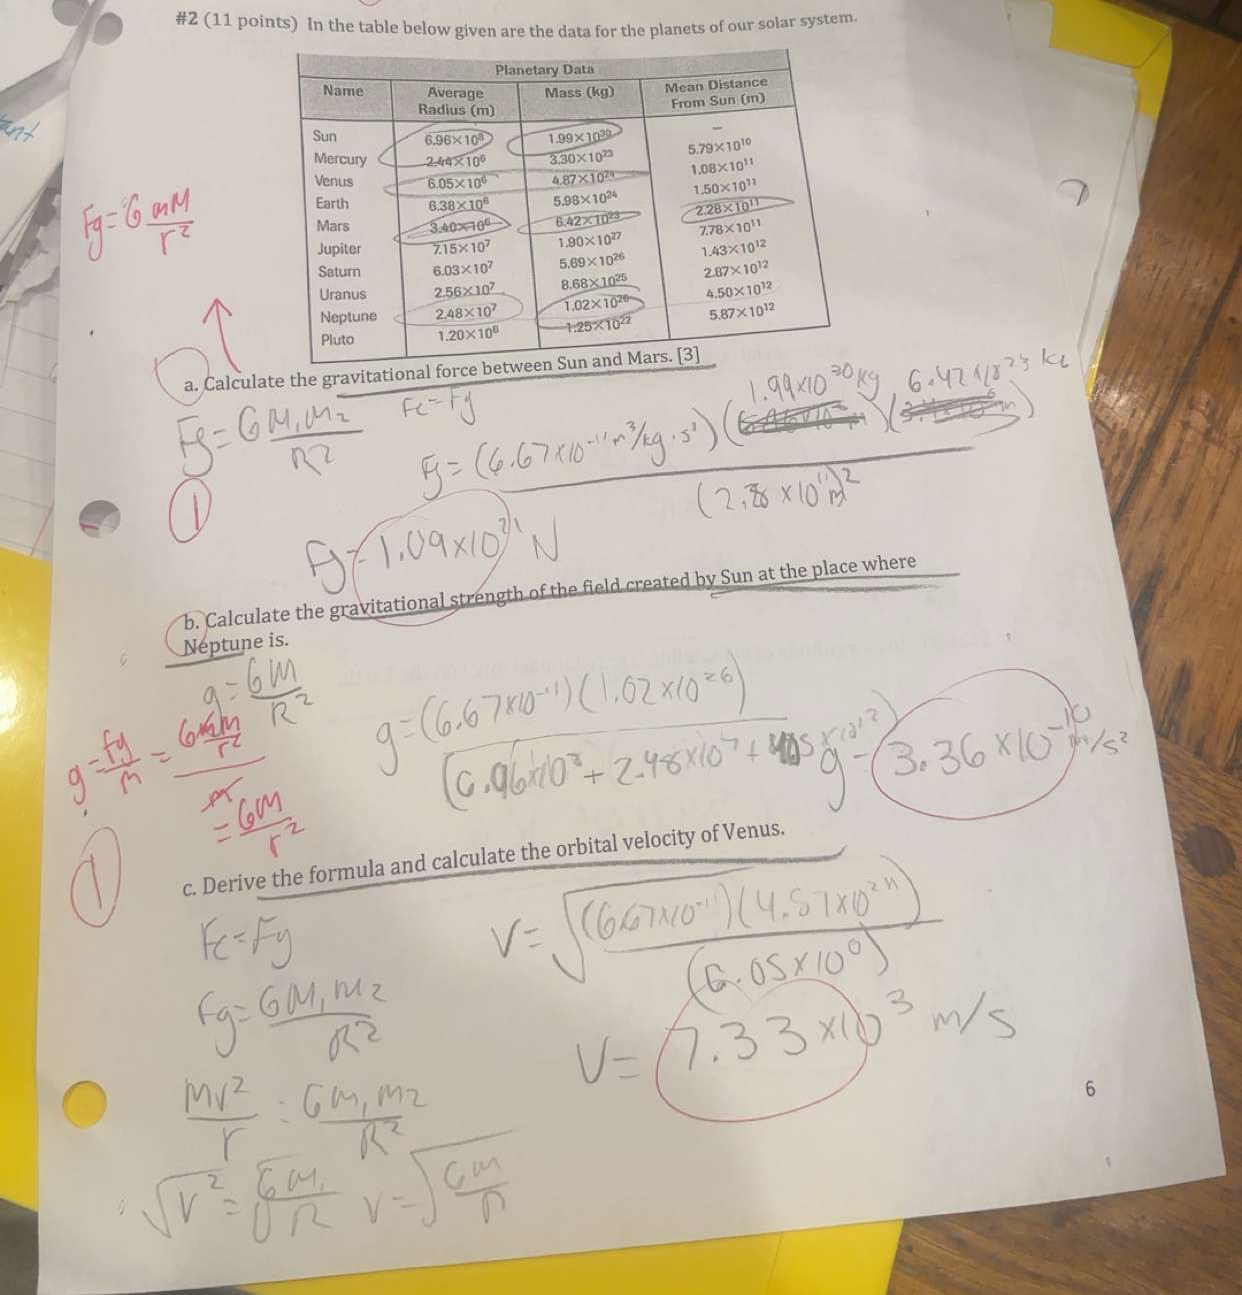 #2 (11 points) In the table below given are the data for the planets of our solar system.
Planetary Data
Name Average Radius (m) Mass (kg) Mean Distance From Sun (m)
Sun 6.96×10⁸ 1.99×10³⁰ –
Mercury 2.44×10⁶ 3.30×10²³ 5.79×10¹⁰
Venus 6.05×10⁶ 4.87×10²⁴ 1.08×10¹¹
Earth 6.38×10⁶ 5.98×10²⁴ 1.50×10¹¹
Mars 3.40×10⁶ 6.42×10²³ 2.28×10¹¹
Jupiter 7.15×10⁷ 1.90×10²⁷ 7.78×10¹¹
Saturn 6.03×10⁷ 5.69×10²⁶ 1.43×10¹²
Uranus 2.56×10⁷ 8.68×10²⁵ 2.87×10¹²
Neptune 2.48×10⁷ 1.02×10²⁶ 4.50×10¹²
Pluto 1.20×10⁶ 1.25×10²² 5.87×10¹²
Fg = G mM/r²
a. Calculate the gravitational force between Sun and Mars. [3]
Fg = GM₁M₂/R²
Fc = Fg
1.99×10³⁰ kg 6.42×10²³ kg
Fg = (6.67×10⁻¹¹ m³/kg·s²)
(2.28×10¹¹ m)²
①
Fg = 1.09×10²¹ N
b. Calculate the gravitational strength of the field created by Sun at the place where
Neptune is.
g = GM/R²
g = (6.67×10⁻¹¹)(1.02×10²⁶)
(6.96×10⁸ + 2.48×10⁷ +
g = 3.36×10⁻¹⁰ m/s²
g = Fg/m = GmM/r² / m
= GM/r²
①
c. Derive the formula and calculate the orbital velocity of Venus.
Fc = Fg
Fg = GM₁M₂/R²
Mv²/r = GM₁M₂/R²
√v² = √GM₁/R v = √GM/R
v = √(6.67×10⁻¹¹)(4.87×10²⁴)/(6.05×10⁶)
V = 7.33×10³ m/s
6